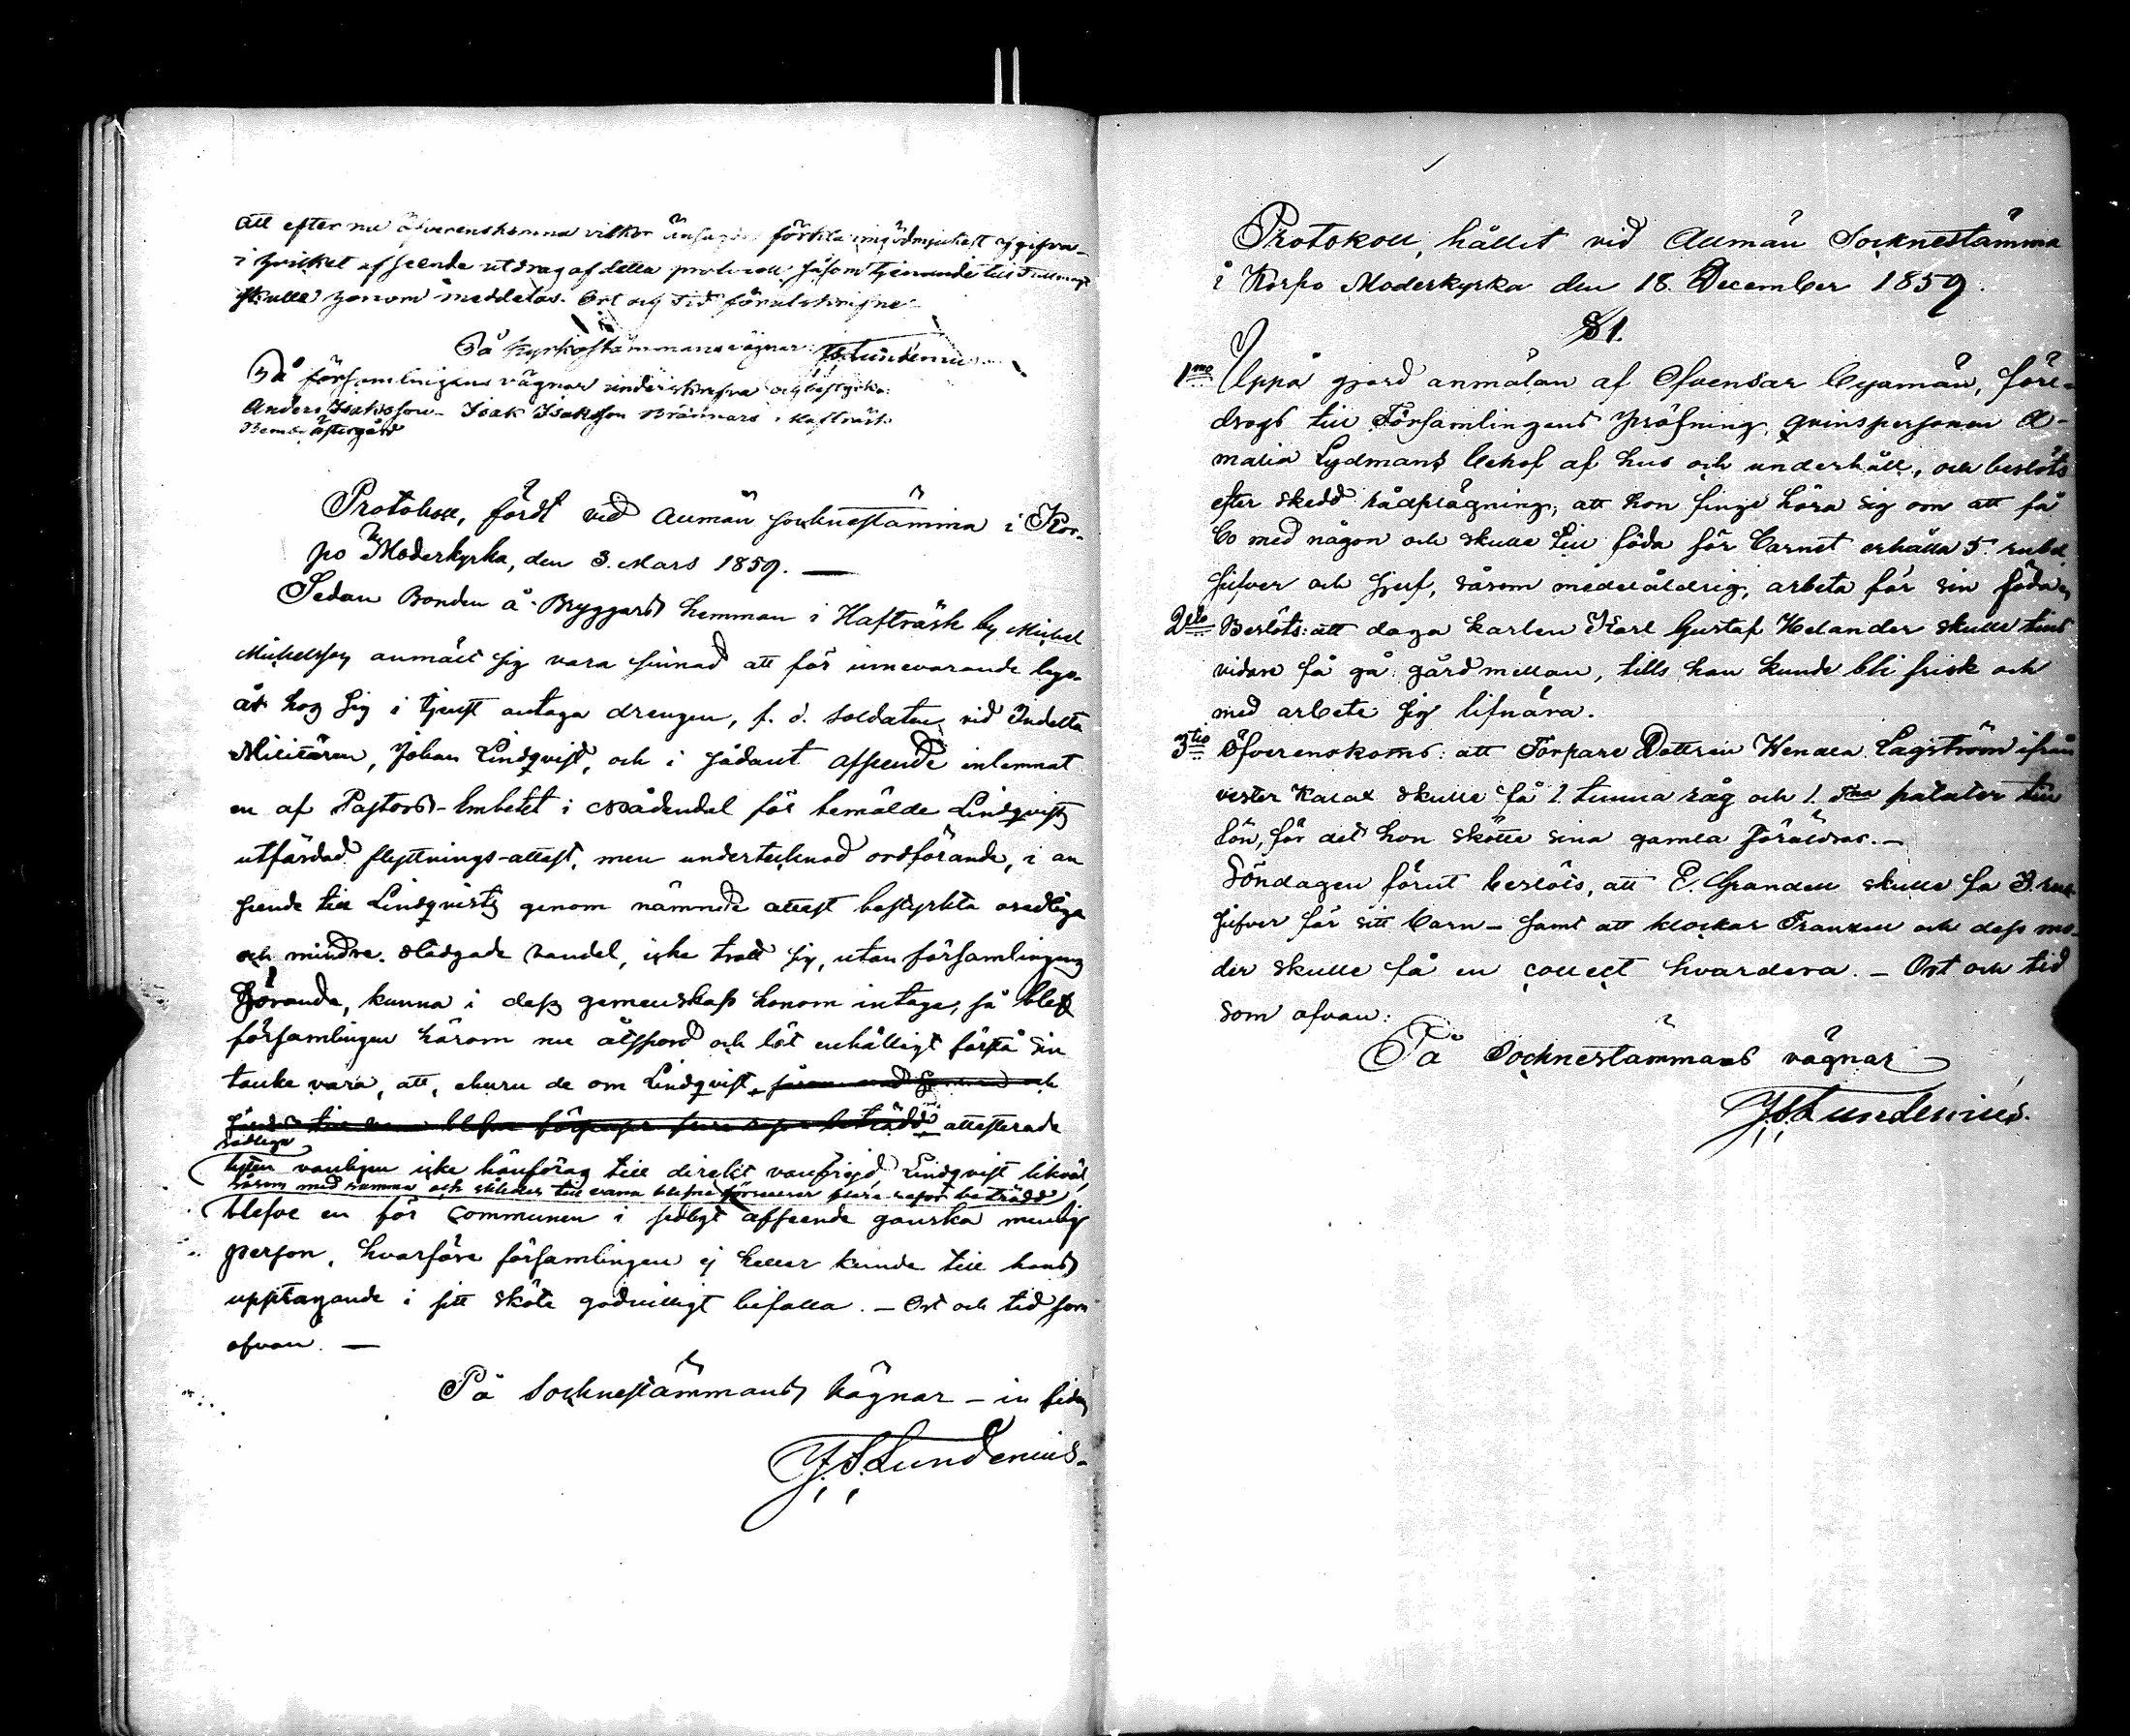 att efter nu öfverenskomna vilkor
i hvilket afseende utdrag af detta protocoll såsom tjenande till Fullmagt
skulle honom meddelas. Ort och tid förutskrifne
På Kyrkostämmans vägnar: J.S. Lundenius
På församlingens vägnar underskrifva och bestyrka:
Anders Isaksson - Isak Isaksson Brännars i Hafträsk
Östergård
Protokoll, fördt vid allmän sochnestämma i Kor-
po Moderkyrka, den 3. Mars 1859. —
Sedan Bonden å Bryggars hemman i Hafträsk by Michel
Michelsson anmält sig vara sinnad att för innevarande lego-
år hos sig i tjenst antaga drengen, f. d. soldaten vid Indelta
Militären, Johan Lindqvist, och i sådant afseende inlemnat
en af Pastors-Embetet i Nådendal för bemälde Lindqvist
utfärdad flyttnings-attest, men undertecknad ordförande, i an-
seende till Lindqvists genom nämnde attest bestyrkta osedliga
och mindre stadgade vandel, icke trott sig, utan församlingens
hörande, kunna i dess gemenskap honom intaga, så blef
församlingen härom nu åtspord och lät enhälligt förstå sin
tanke vara, att, ehuru de om Lindqvist
blefne förseelser flere resor beträdd attesterade
sedliga
lyten vanligen icke hänföras till direkt vanfrejd, Lindqvist likväl,
såsom med samma och således till vana blefne förseelser flera resor beträdd,
blefve en för communen i sedligt afseende ganska menlig
person, hvarföre församlingen ej heller kunde till hans
upptagande i sitt sköte godvilligt bifalla. — Ort och tid som
ofvan. —
På Sochnestämmans vägnar — in fidem
J.S. Lundenius.
Protokoll, hållit vid Allmän Socknestämma
i Korpo Moderkyrka den 18. December 1859.
§ 1.
1mo Uppå gjord anmälan af Ofvensar byamän, före-
drogs till Församlingens pröfning, qvinspersonen A-
malia Lydmans behof af hus och underhåll, och beslöts
efter skedd rådplägning, att hon finge höra sig om att få
bo med någon och skulle till föda för barnet erhålla 5. rubel
silfver och sjelf, såsom medelåldrig, arbeta för sin föda,
2do Beslöts: att daga karlen Karl Gustaf Helander skulle tills
vidare få gå gård mellan, tills han kunde bli frisk och
med arbete sig lifnära.
3tio Öfverenskoms: att Torpare Dottren Wendla Lagström ifrån
vester Kalax skulle få 1 tunna råg och 1. Tna patater till
lön, för det hon skötte sina gamla föräldrar. —
Söndagen förut beslöts, att E. Grandell skulle få 3. rub.
silfver för sitt barn — samt att klockar Franzen och dess mo-
der skulle få en collect hvardera. — Ort och tid
som ofvan:
På Socknestämmans vägnar
J.S. Lundenius.